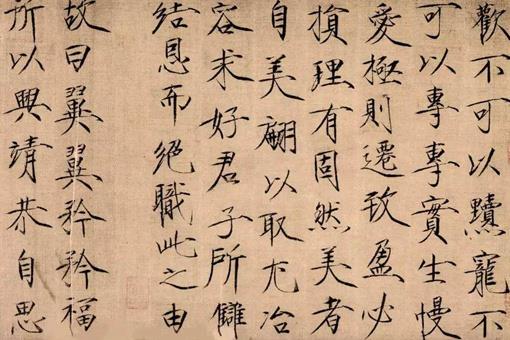 歡不可以黷寵不
可以專專實生慢
愛極則遷致盈必
損理有固然美者
自美翩以取尤冶
容求好君子所讎
結恩而絕職此之由
故曰翼翼矜矜福
所以興靖恭自思